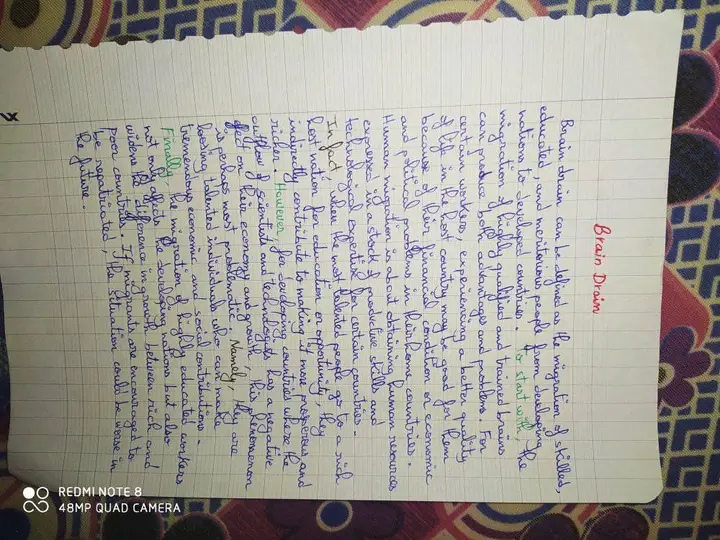 Brain Drain
Brain drain can be defined as the migration of skilled,
educated, and meritorious people from developing
nations to developed countries. To start with, the
migration of highly qualified and trained brains
can produce both advantages and problems. For
certain workers, experiencing a better quality
of life in the host country may be good for them
because of their financial condition or economic
and political problems in their home countries.
Human migration is about obtaining human resources
expressed by a stock of productive skills and
technological expertise for certain countries.
In fact, when the most talented people go to a rich
host nation for education or opportunity, they
indirectly contribute to making it more prosperous and
richer. However, for developing countries where the
outflow of scientists and technologies has a negative
effect on their economy and growth, this phenomenon
is perhaps most problematic. Namely, they are
loosing talented individuals who can make
tremendous economic and social contributions.
Finally, the migration of highly educated workers
not only affects the developing nations but also
widens the difference in growth between rich and
poor countries. If migrants are encouraged to
be repatriated, the situation could be worse in
the future.
REDMI NOTE 8
48MP QUAD CAMERA